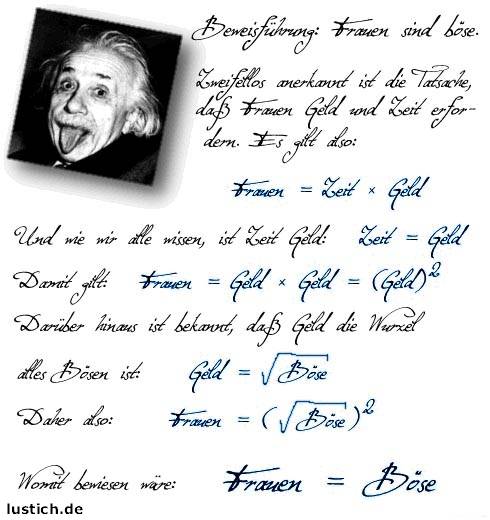 Beweisführung: Frauen sind böse.
Zweifellos anerkannt ist die Tatsache,
daß Frauen Geld und Zeit erfor-
dern. Es gilt also:
Frauen = Zeit × Geld
Und wie wir alle wissen, ist Zeit Geld: Zeit = Geld
Damit gilt: Frauen = Geld × Geld = (Geld)²
Darüber hinaus ist bekannt, daß Geld die Wurzel
alles Bösen ist: Geld = √Böse
Daher also: Frauen = (√Böse)²
Womit bewiesen wäre: Frauen = Böse
lustich.de